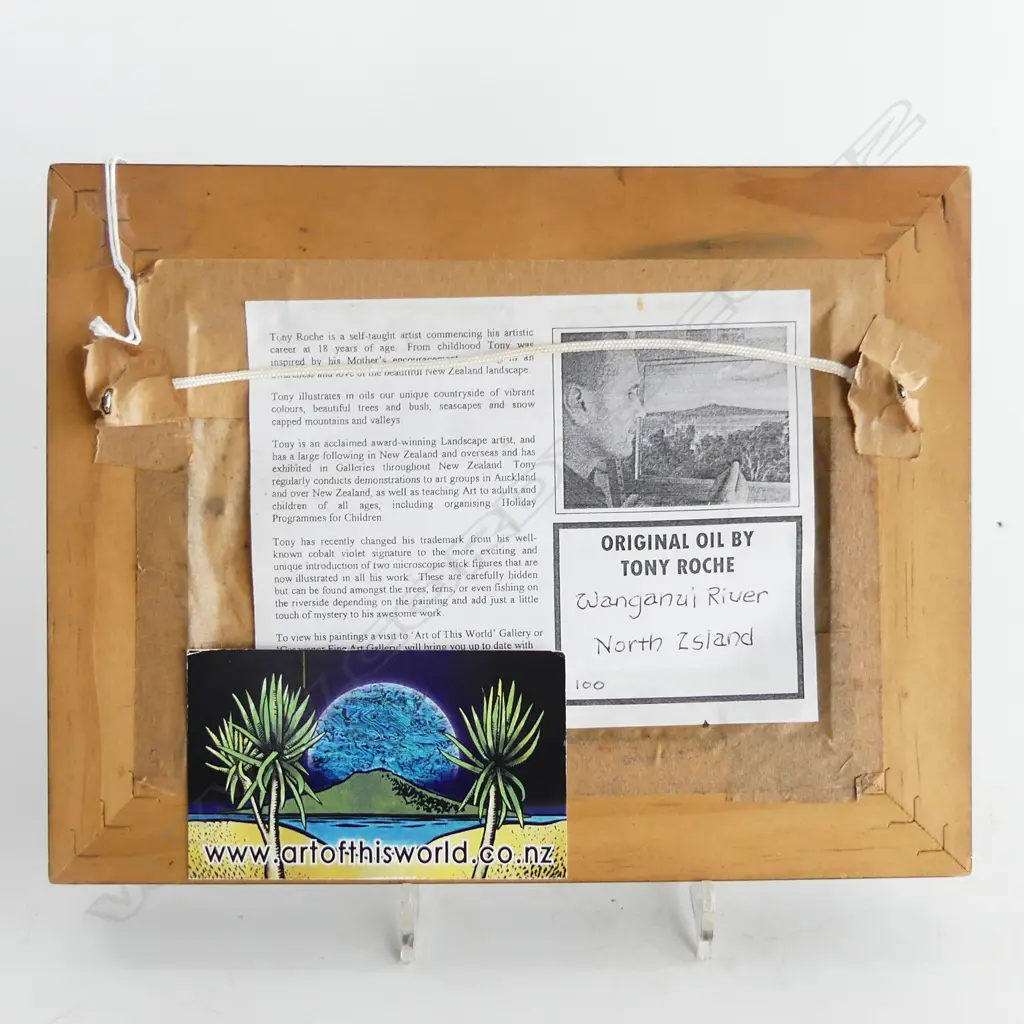 Tony Roche is a self-taught artist commencing his artistic
career at 18 years of age. From childhood Tony was
inspired by his Mother's encouragement an
awareness and love of the beautiful New Zealand landscape.
Tony illustrates in oils our unique countryside of vibrant
colours, beautiful trees and bush, seascapes and snow
capped mountains and valleys.
Tony is an acclaimed award-winning Landscape artist, and
has a large following in New Zealand and overseas and has
exhibited in Galleries throughout New Zealand. Tony
regularly conducts demonstrations to art groups in Auckland
and over New Zealand, as well as teaching Art to adults and
children of all ages, including organising Holiday
Programmes for Children.
Tony has recently changed his trademark from his well-
known cobalt violet signature to the more exciting and
unique introduction of two microscopic stick figures that are
now illustrated in all his work. These are carefully hidden
but can be found amongst the trees, ferns, or even fishing on
the riverside depending on the painting and add just a little
touch of mystery to his awesome work.
To view his paintings a visit to 'Art of This World' Gallery or
Fine Art Gallery' will bring you up to date with
ORIGINAL OIL BY
TONY ROCHE
Wanganui River
North Island
100
www.artofthisworld.co.nz